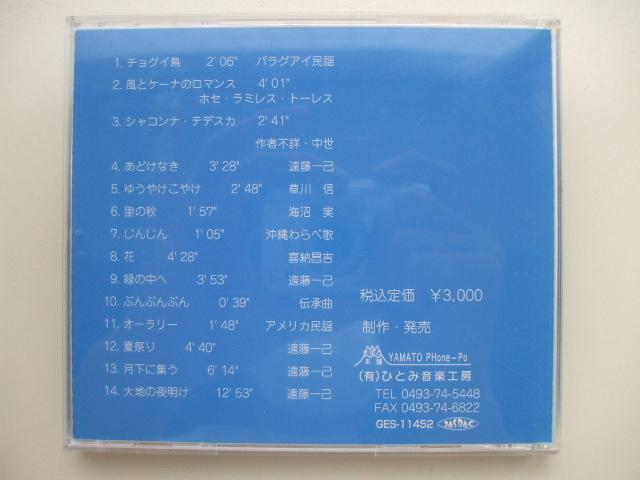 1. チョグイ鳥 2'06" パラグアイ民謡
2. 風とケーナのロマンス 4'01"
ホセ・ラミレス・トーレス
3. シャコンナ・テデスカ 2'41"
作者不詳・中世
4. あどけなき 3'28" 遠藤一己
5. ゆうやけこやけ 2'48" 草川 信
6. 里の秋 1'57" 海沼 実
7. じんじん 1'05" 沖縄わらべ歌
8. 花 4'28" 喜納昌吉
9. 緑の中へ 3'53" 遠藤一己
10. ぶんぶんぶん 0'39" 伝承曲
11. オーラリー 1'48" アメリカ民謡
12. 夏祭り 4'40" 遠藤一己
13. 月下に集う 6'14" 遠藤一己
14. 大地の夜明け 12'53" 遠藤一己
税込定価 ¥3,000
制作・発売
本舗 YAMATO PHone-Po
(有)ひとみ音楽工房
TEL 0493-74-5448
FAX 0493-74-6822
GES-11452